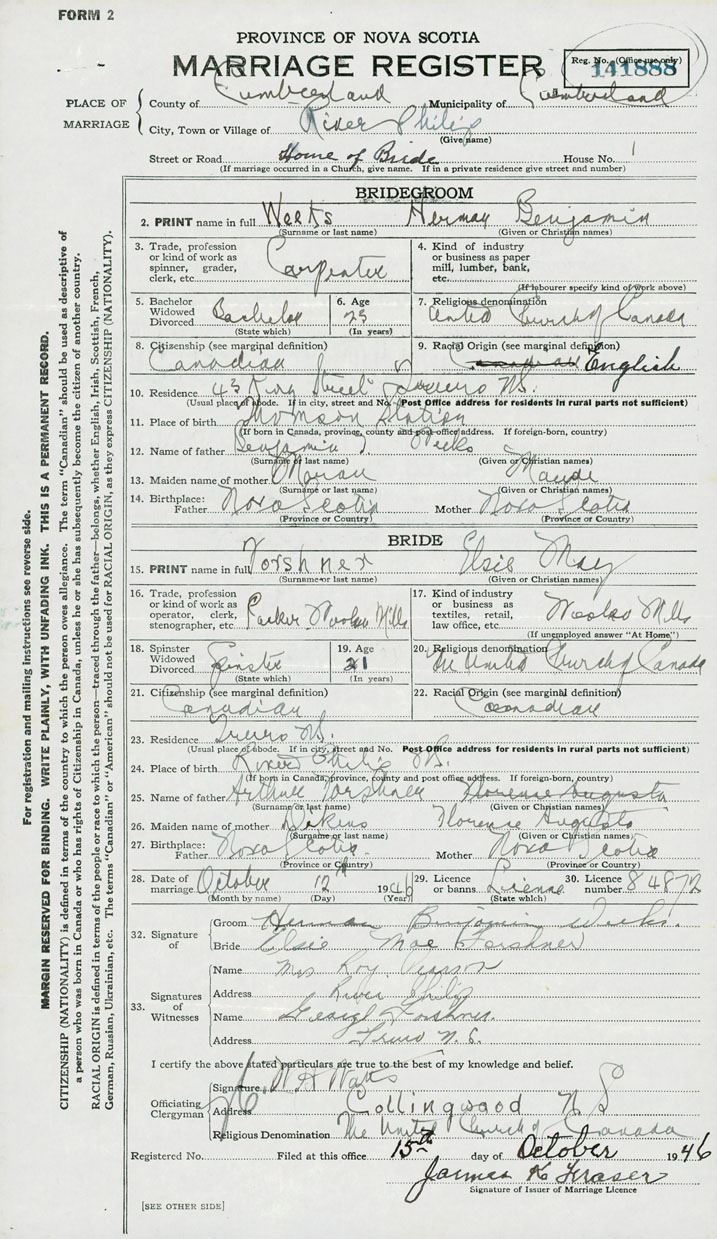 FORM 2
PROVINCE OF NOVA SCOTIA
MARRIAGE REGISTER
Reg. No. (Office use only)
141888
PLACE OF MARRIAGE
County of Cumberland Municipality of Cumberland
City, Town or Village of River Philip
(Give name)
Street or Road Home of Bride House No.
(If marriage occurred in a Church, give name. If in a private residence give street and number)
BRIDEGROOM
2. PRINT name in full Weeks Herman Benjamin
(Surname or last name) (Given or Christian names)
3. Trade, profession or kind of work as spinner, grader, clerk, etc. Carpenter
4. Kind of industry or business as paper mill, lumber, bank, etc.
(If labourer specify kind of work above)
5. Bachelor Widowed Divorced Bachelor
(State which)
6. Age 23
(In years)
7. Religious denomination United Church of Canada
8. Citizenship (see marginal definition) Canadian
9. Racial Origin (see marginal definition) Canadian English
10. Residence 43 King Street Truro N.S.
(Usual place of abode. If in city, street and No. Post Office address for residents in rural parts not sufficient)
11. Place of birth Thomson Station
(If born in Canada, province, county and post office address. If foreign-born, country)
12. Name of father Benjamin Weeks
(Surname or last name) (Given or Christian names)
13. Maiden name of mother Maude
(Surname or last name) (Given or Christian names)
14. Birthplace: Father Nova Scotia Mother Nova Scotia
(Province or Country) (Province or Country)
BRIDE
15. PRINT name in full Forshner Elsie May
(Surname or last name) (Given or Christian names)
16. Trade, profession or kind of work as operator, clerk, stenographer, etc. Woolen Mills
17. Kind of industry or business as textiles, retail, law office, etc. Woolen Mills
(If unemployed answer "At Home")
18. Spinster Widowed Divorced Spinster
(State which)
19. Age 21
(In years)
20. Religious denomination The United Church of Canada
21. Citizenship (see marginal definition) Canadian
22. Racial Origin (see marginal definition) Canadian
23. Residence Truro N.S.
(Usual place of abode. If in city, street and No. Post Office address for residents in rural parts not sufficient)
24. Place of birth River Philip N.S.
(If born in Canada, province, county and post office address. If foreign-born, country)
25. Name of father Arthur Forshner Florence Augusta
(Surname or last name) (Given or Christian names)
26. Maiden name of mother Florence Augusta
(Surname or last name) (Given or Christian names)
27. Birthplace: Father Nova Scotia Mother Nova Scotia
(Province or Country) (Province or Country)
28. Date of marriage October 12th 1946
(Month by name) (Day) (Year)
29. Licence or banns License
(State which)
30. Licence number 84872
32. Signature of
Groom Herman Benjamin Weeks.
Bride Elsie Mae Forshner
33. Signatures of Witnesses
Name Mrs Roy Pearson
Address River Philip
Name George Forshner.
Address Truro N. S.
I certify the above stated particulars are true to the best of my knowledge and belief.
Officiating Clergyman
Signature W A Watts
Address Collingwood N S
Religious Denomination The United Church of Canada
Registered No. Filed at this office 15th day of October 1946
James K Fraser
Signature of Issuer of Marriage Licence
[SEE OTHER SIDE]
For registration and mailing instructions see reverse side.
MARGIN RESERVED FOR BINDING. WRITE PLAINLY, WITH UNFADING INK. THIS IS A PERMANENT RECORD.
CITIZENSHIP (NATIONALITY) is defined in terms of the country to which the person owes allegiance. The term "Canadian" should be used as descriptive of
a person who was born in Canada or who has rights of Citizenship in Canada, unless he or she has subsequently become the citizen of another country.
RACIAL ORIGIN is defined in terms of the people or race to which the person—traced through the father—belongs, whether English, Irish, Scottish, French,
German, Russian, Ukrainian, etc. The terms "Canadian" or "American" should not be used for RACIAL ORIGIN, as they express CITIZENSHIP (NATIONALITY).